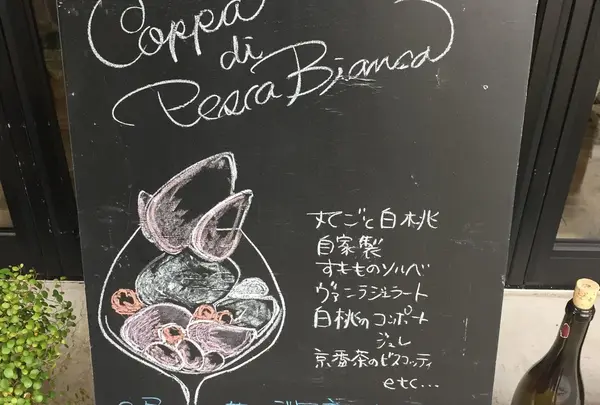 Coppa
di
Pesca Bianca
まるごと白桃
自家製
すもものソルベ
ヴァニラジェラート
白桃のコンポート
ジュレ
京番茶のビスコッティ
etc...